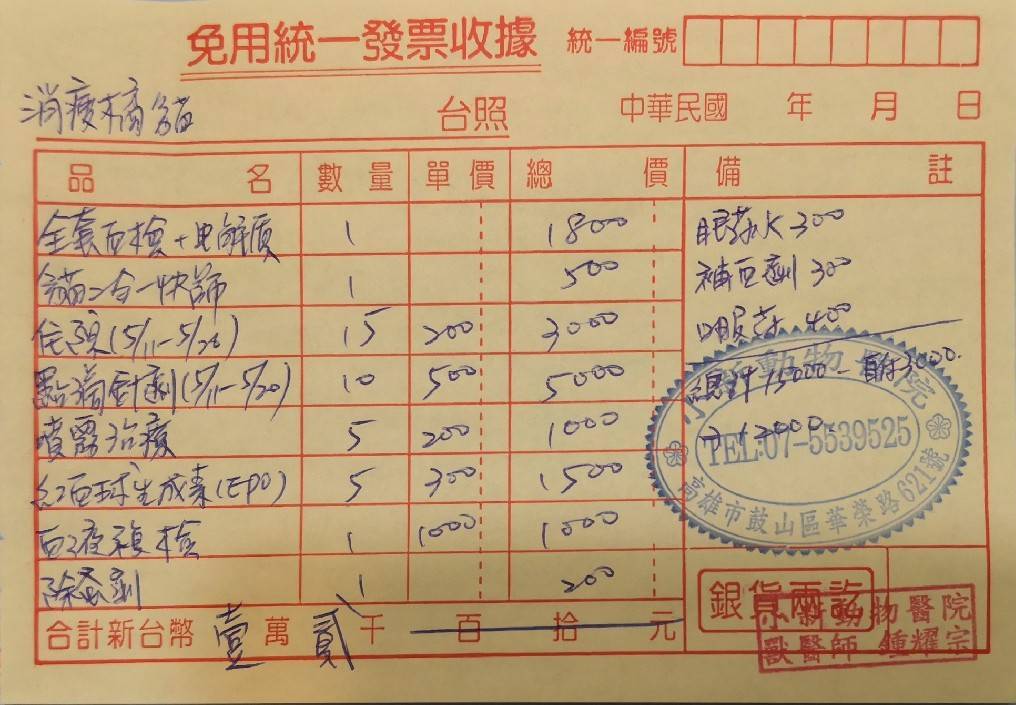 免用統一發票收據 統一編號
消瘦橘貓 台照 中華民國 年 月 日
品名 數量 單價 總價 備註
全套血檢+電解質 1 1800
貓二合一快篩 1 500
住院(5/11-5/26) 15 200 3000
點滴針劑(5/11-5/20) 10 500 5000
噴霧治療 5 200 1000
紅血球生成素(EPO) 5 300 1500
血液複檢 1 1000 1000
除蚤劑 1 200
眼藥水 300
補血劑 300
口服藥 400
總計 15000 - 自付3000.
12000
動物 院
TEL:07-5539525
高雄市鼓山區華榮路621號
合計新台幣 壹萬貳千 百 拾 元
銀貨兩訖
動物醫院
獸醫師 鍾耀宗